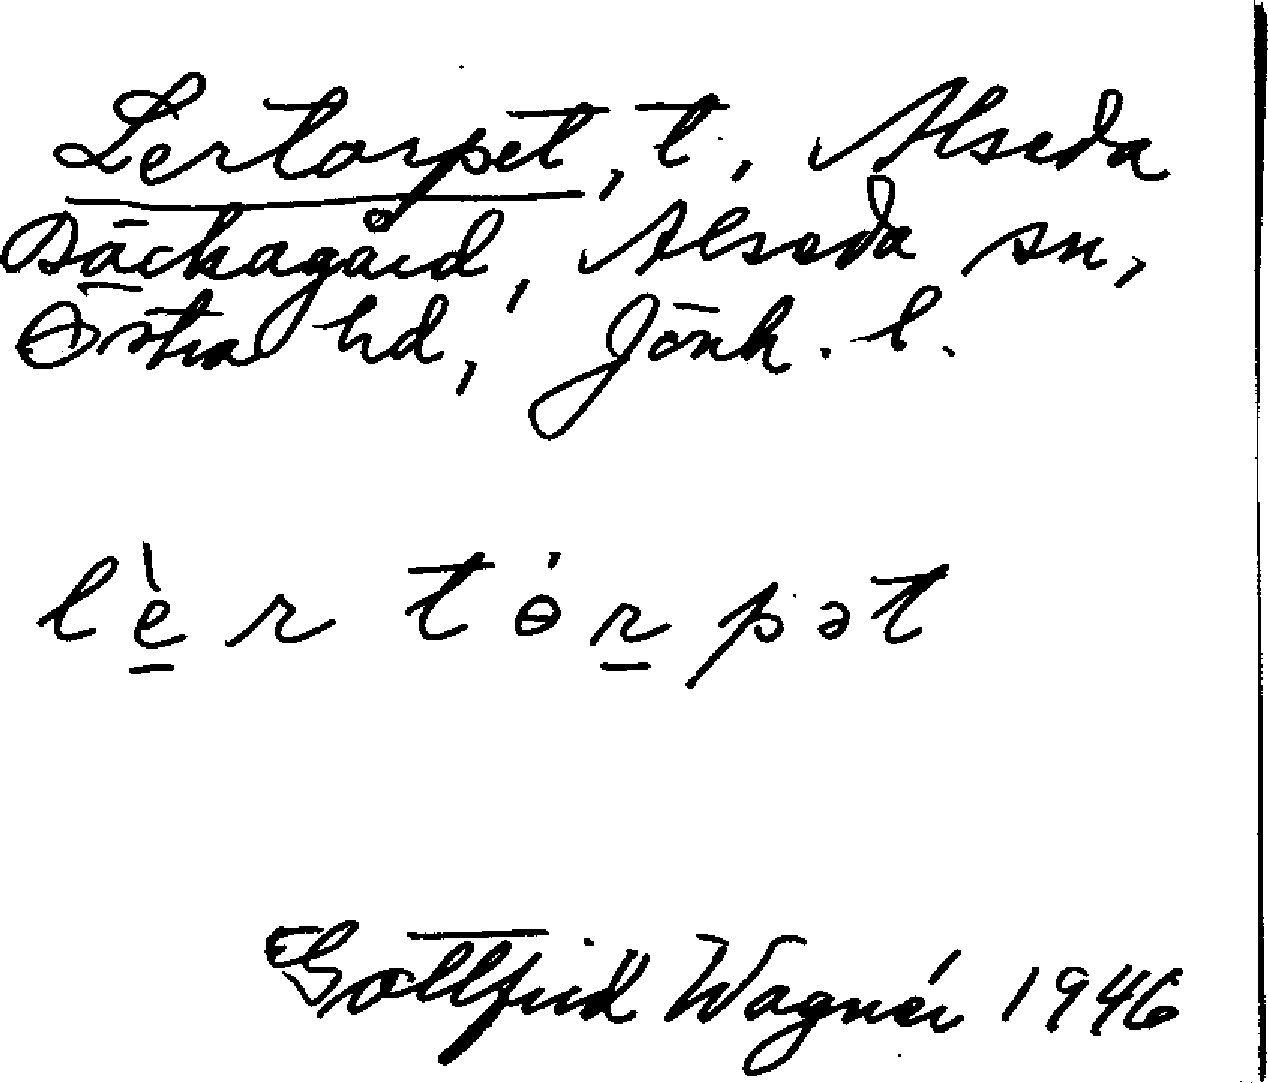 Lertorpet, t., Alseda
Bäckagård, Alseda sn,
Östra hd, Jönk. l.
lè̠r tɵ́r̠pət
Gottfrid Wagnér 1946